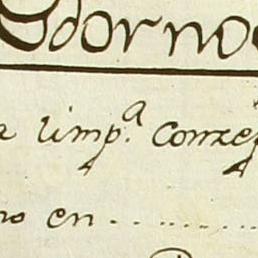 Adorno
limp.ª conze
no en . . . . . . . . .